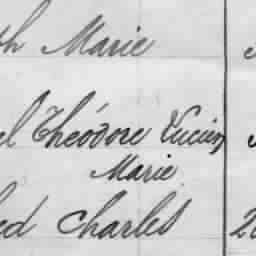 th Marie
el Théodore Lucien
Marie
ed Charles 2